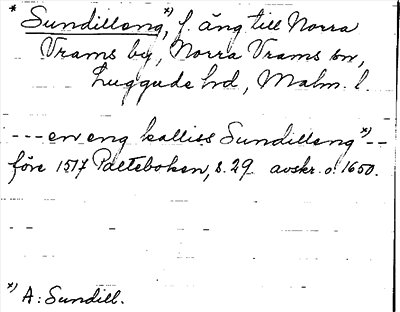 * Sundilleng *), f. äng till Norra
Vrams by, Norra Vrams sn,
Luggude hd, Malm. l.
--- en eng kalliss Sundilleng *) --
före 1517 Palteboken, s. 29 avskr. o. 1650.
*) A: Sundill.